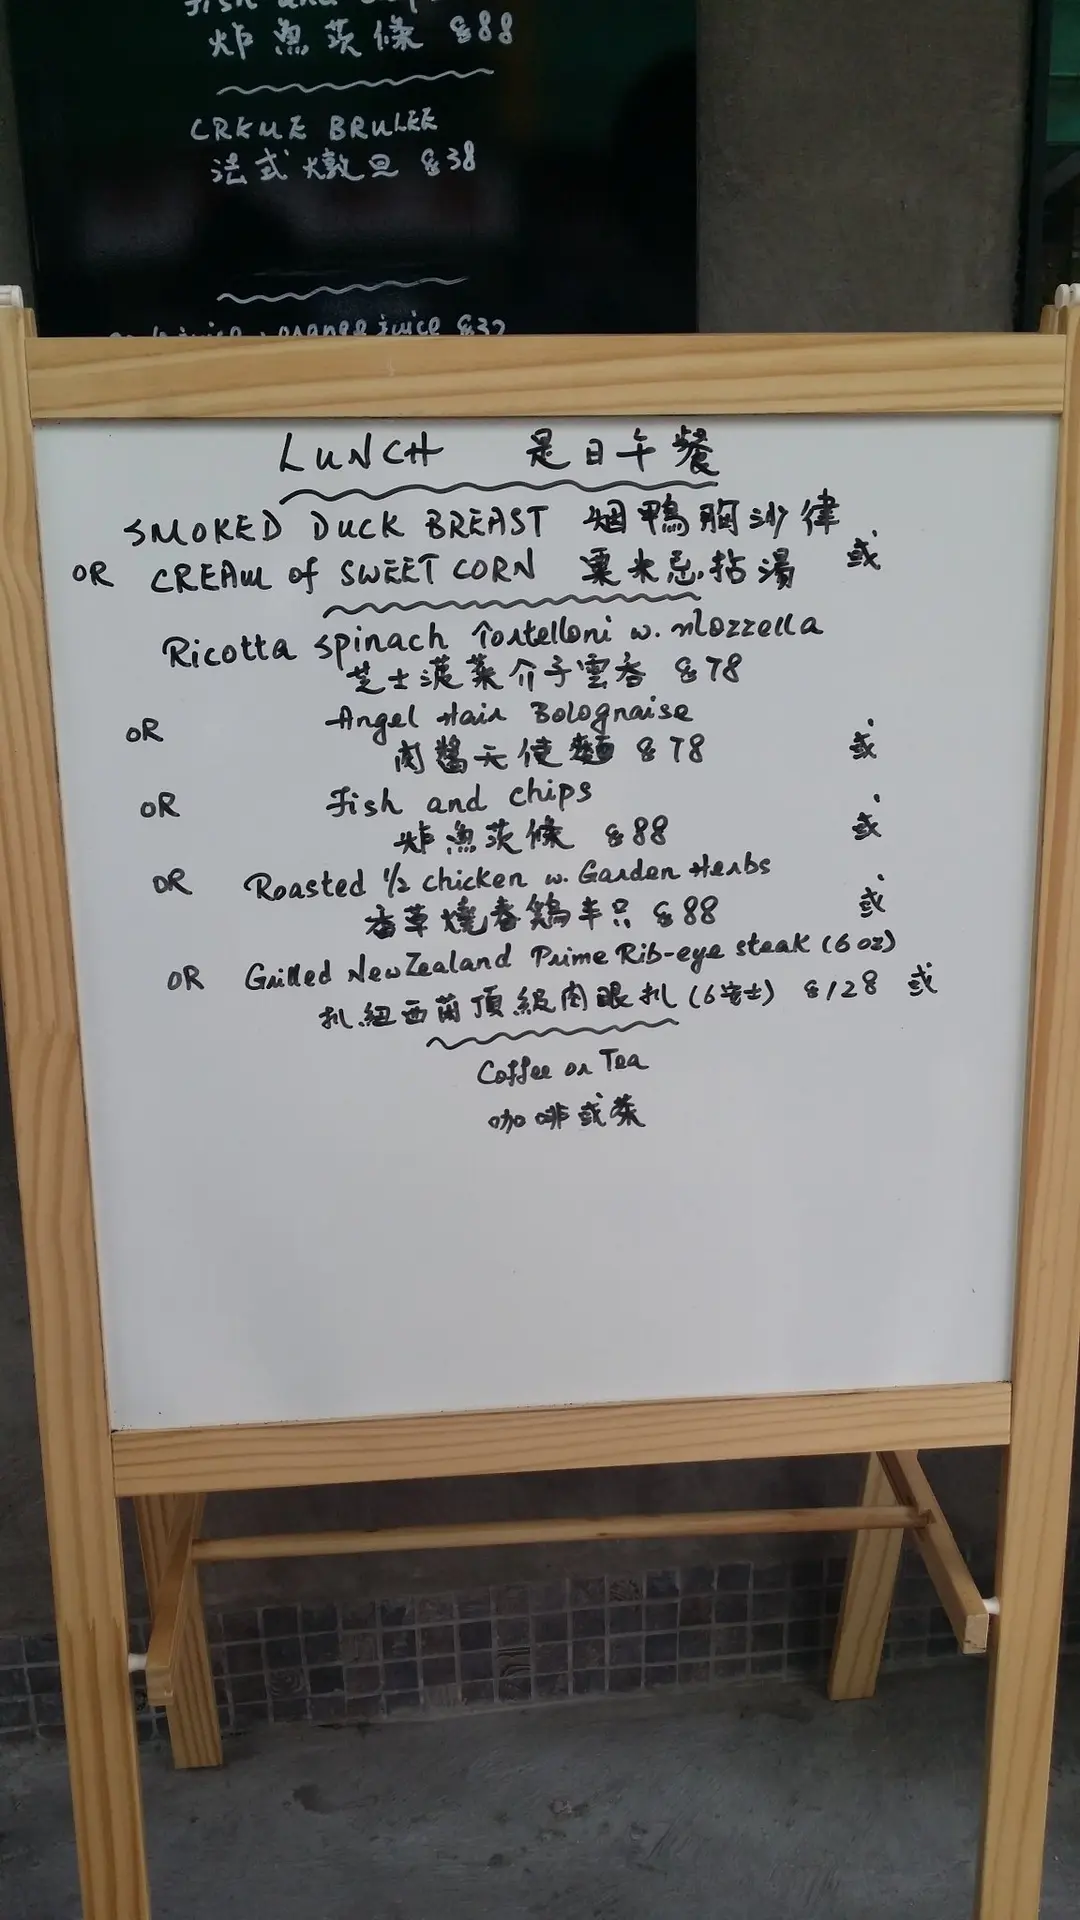 Fish and Chips
炸魚茨條 $88
CREME BRULEE
法式燉旦 $38
orange juice $32
LUNCH 是日午餐
SMOKED DUCK BREAST 烟鴨胸沙律
OR CREAM of SWEET CORN 粟米忌拈湯 或
Ricotta spinach Tortelloni w. Mozzella
芝士菠菜介子雲吞 $78
OR Angel Hair Bolognaise
肉醬天使麵 $78 或
OR Fish and chips
炸魚茨條 $88 或
OR Roasted ½ chicken w. Garden Herbs
香草燒春鷄半只 $88 或
OR Grilled New Zealand Prime Rib-eye steak (6 oz)
扒紐西茼頂級肉眼扒 (6安士) $128 或
Coffee or Tea
咖啡或茶